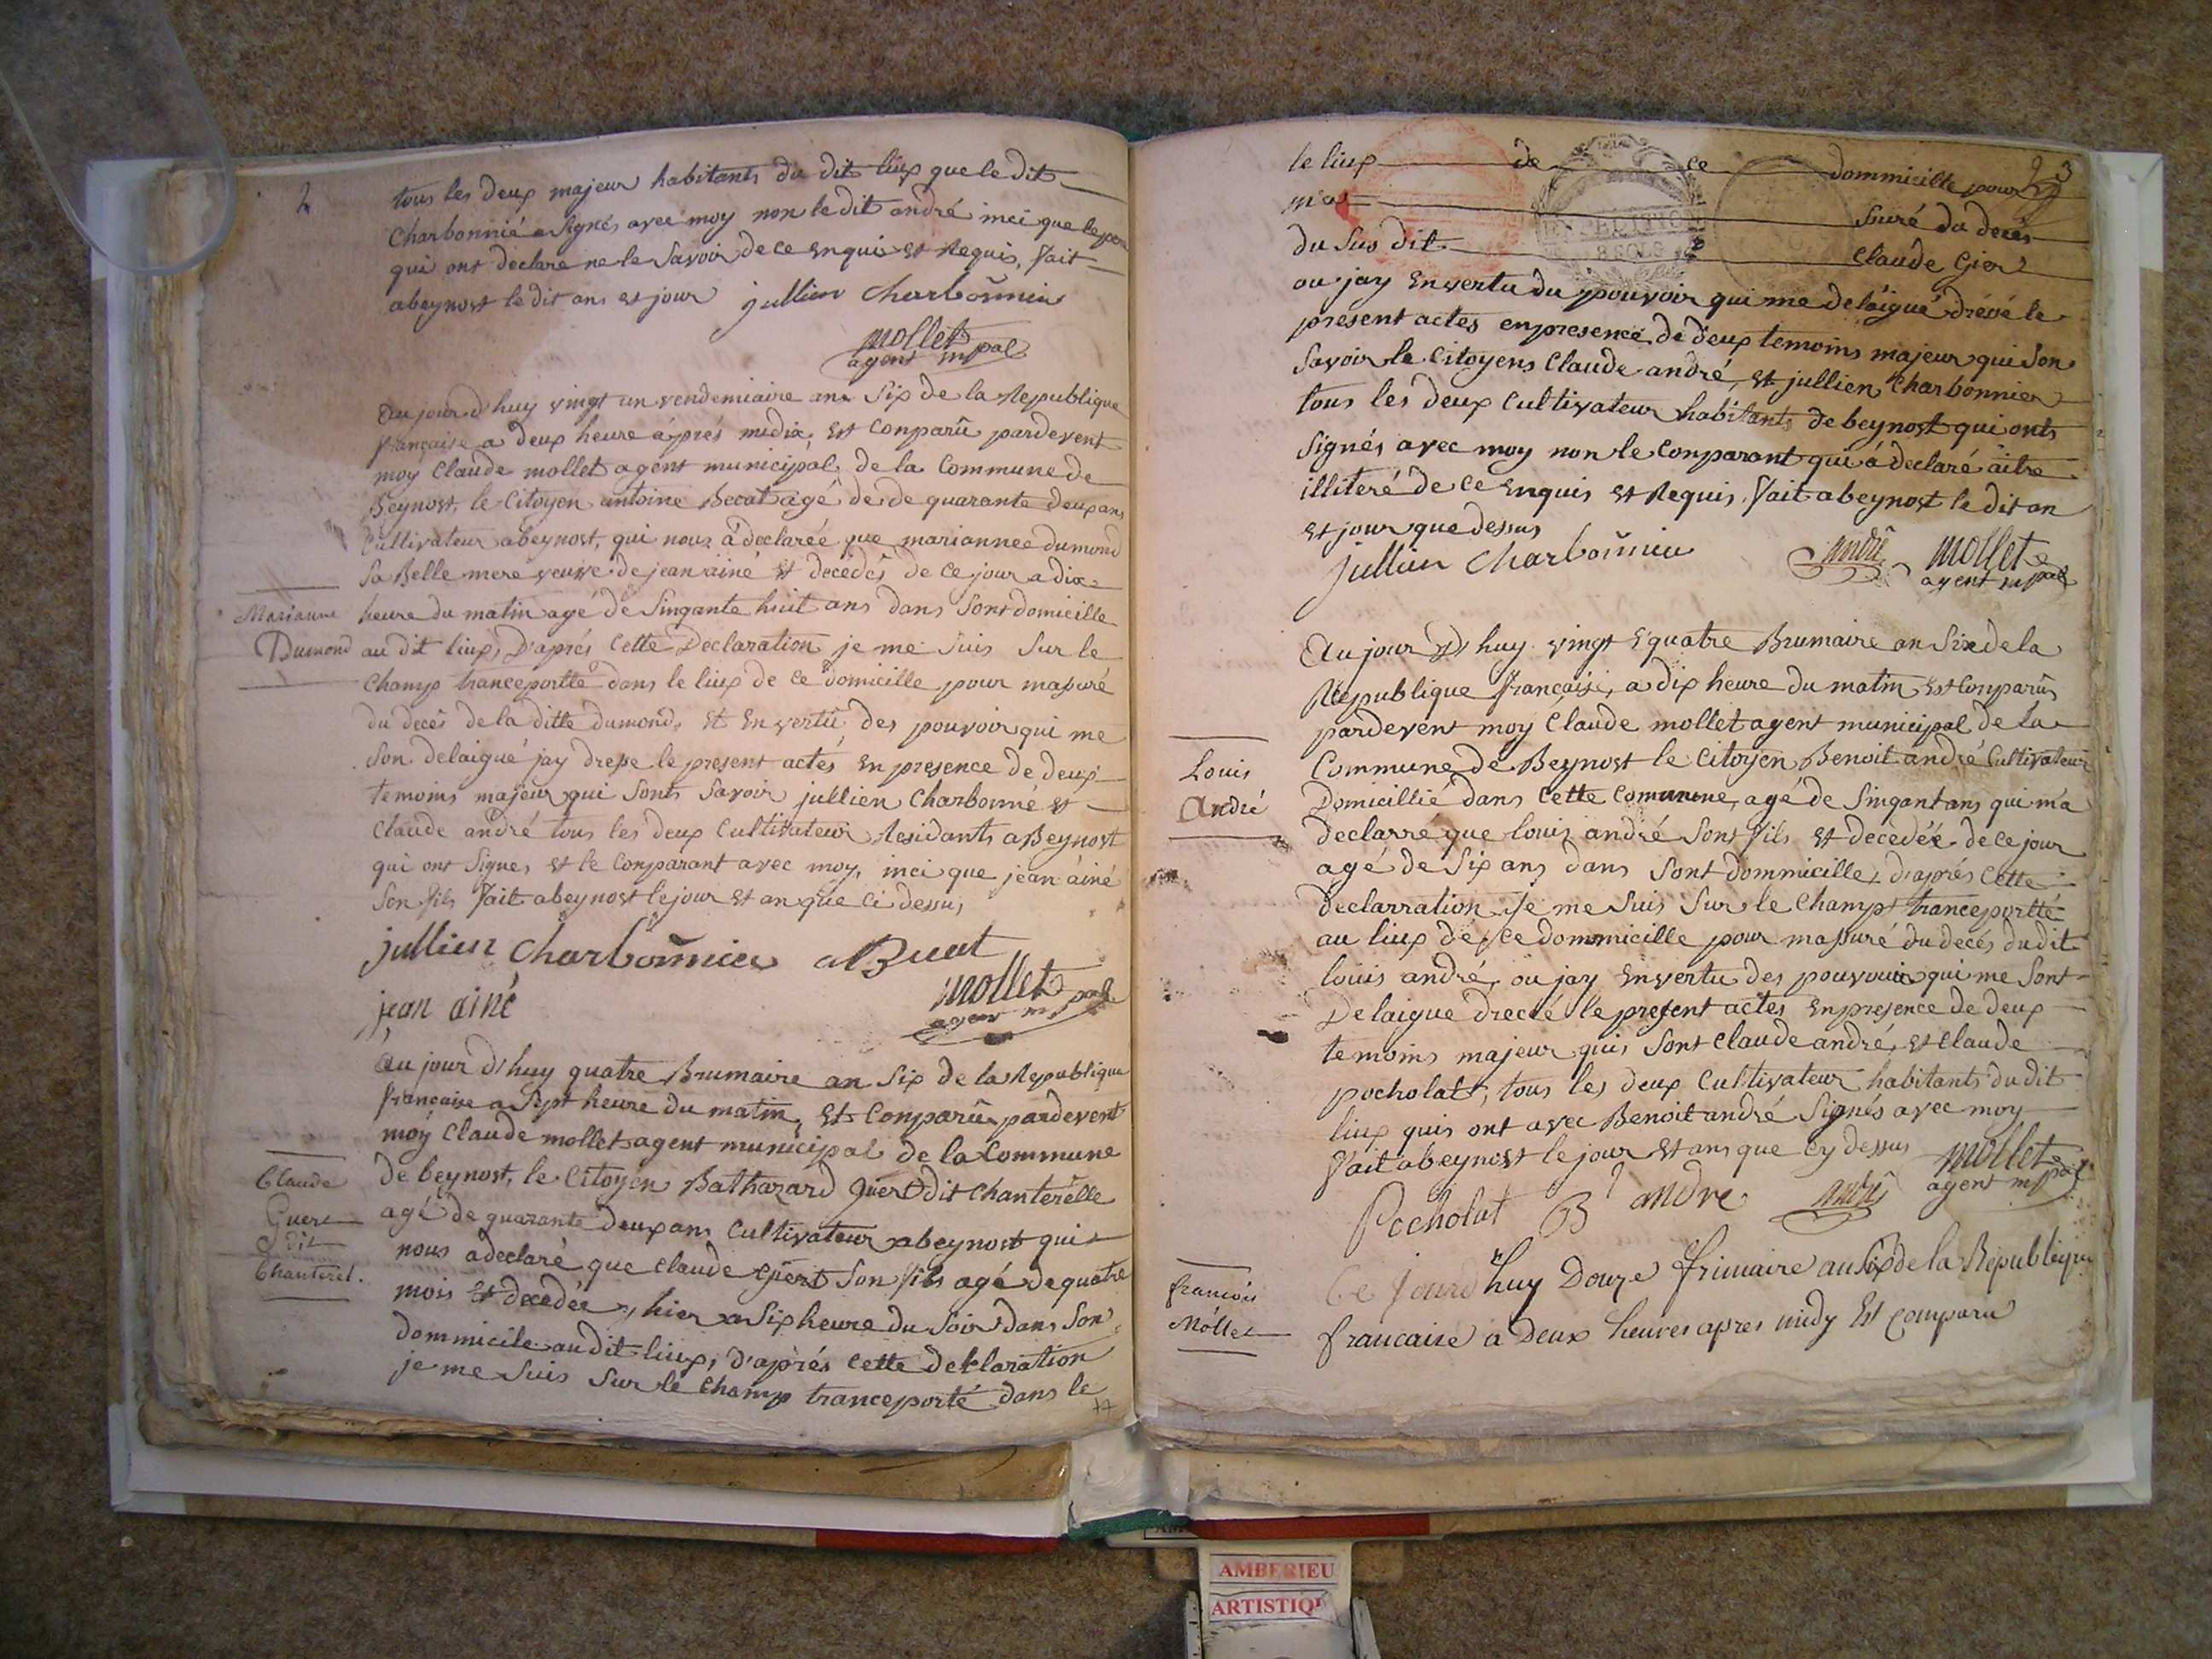 2
tous les deux majeur habitants du dit lieux que le dit
Charbonnié a Signés avec moy non le dit andré inci que le pere
qui ont declare ne le Savoir de ce enquis et Requis, fait
abeynost le dit ans et jour jullien Charbonnier
mollet
agent mpal
Aujour d'huy vingt un vendemiaire ans Six de la Republique
française a deux heure áprés midix, est Conparû pardevent
moy Claude mollet agent municipal de la Commune de
Beynost, le Citoyen antoine Becat agé de de quarante deux ans
Cultivateur abeynost, qui nous á declarée que mariannee dumond
Sa Belle mere veuve de jean ainé et decedés de ce jour a dix
Marianne
Dumond
heure du matin agé de Singante huit ans dans Sont domicille
au dit lieux, D'aprés Cette Declaration je me Suis Sur le
Champ tranceportté dans le lieux de Ce domicille pour massuré
du decés de la ditte dumond, et En vertû des pouvoir qui me
Son delaigué jay dresse le present actés en presence de deux
temoins majeur qui Sonts Savoir jullien Charbonné et
Claude andré tous les deux Cultivateur Residants a Beynost
qui ont Signes et le Conparant avec moy, inci que jean áiné
Son fils fait abeynost le jour et an que Ci dessus,
jullien Charbonnier a Buat
jean ainé
mollet
agent mpal
Aujour d'huy quatre Brumaire an Six de la Republique
française a Sept heure du matin, est Conparû pardevent
moy Claude mollet agent municipal de la Commune
Claude
Guers
dit
Chanterel.
de beynost, le Citoyen Bathazard Guers dit Chanterélle
agé de quarante deux ans Cultivateur abeynost qui
nous adeclaré que Claude Giers Son fils agé de quatre
mois et decedée, hier a Six heure du Soir dans Son
dommicile audit lieux, d'aprés Cette declaration
je me Suis Sur le Champ tranceporté dans le
23
le lieux de ce dommicille pour
mas suré du decés
du Sus dit Claude Gier
ou jay En vertu du pouvoir qui me delaigué drécé le
present actes en presence de deux temoins majeur qui Son
Savoir le Citoyens Claude andré, et jullien Charbonnier
tous les deux Cultivateur habitants de beynost qui onts
Signés avec moy non le Conparant qui á declaré aitre
illiteré de Ce Enquis et Requis. fait abeynost le dit an
et jour que dessus
jullien Charbonnier André mollet
agent mpal
Aujour D'huy vingt Equatre Brumaire an Six de la
Republique française, a dix heure du matin est Conparûs
pardevent moy Claude mollet agent municipal de la
Louis
André
Commune de Beynost le Citoyen Benoit andré Cultivateur
Domicillié dans Cette Comunne, agé de Singant ans qui m'a
declarré que louis andré Sont fils et decedée de ce jour
agé de Six ans dans Sont dommicille, d'aprés Cette
declarration Je me Suis Sur le Champ tranceportté
au lieux de Ce dommicille pour massuré du decés du dit
louis andré, ou jay En vertu des pouvouir qui me Sont
Delaigue drecé le present actes En presence de deux
temoins majeur quis Sont Claude andré, et Claude
pocholat, tous les deux Cultivateur habitants du dit
lieux quis ont avec Benoit andré Signés avec moy
fait abeynost le jour et ans que Cy dessus mollet
agent mpal
Pocholat B andre André
francois
Mollet
Ce Jourd huy Douze frimaire an Six de la Republique
francaise a Deux heures apres midy Est Comparu
AMBERIEU
ARTISTIQ